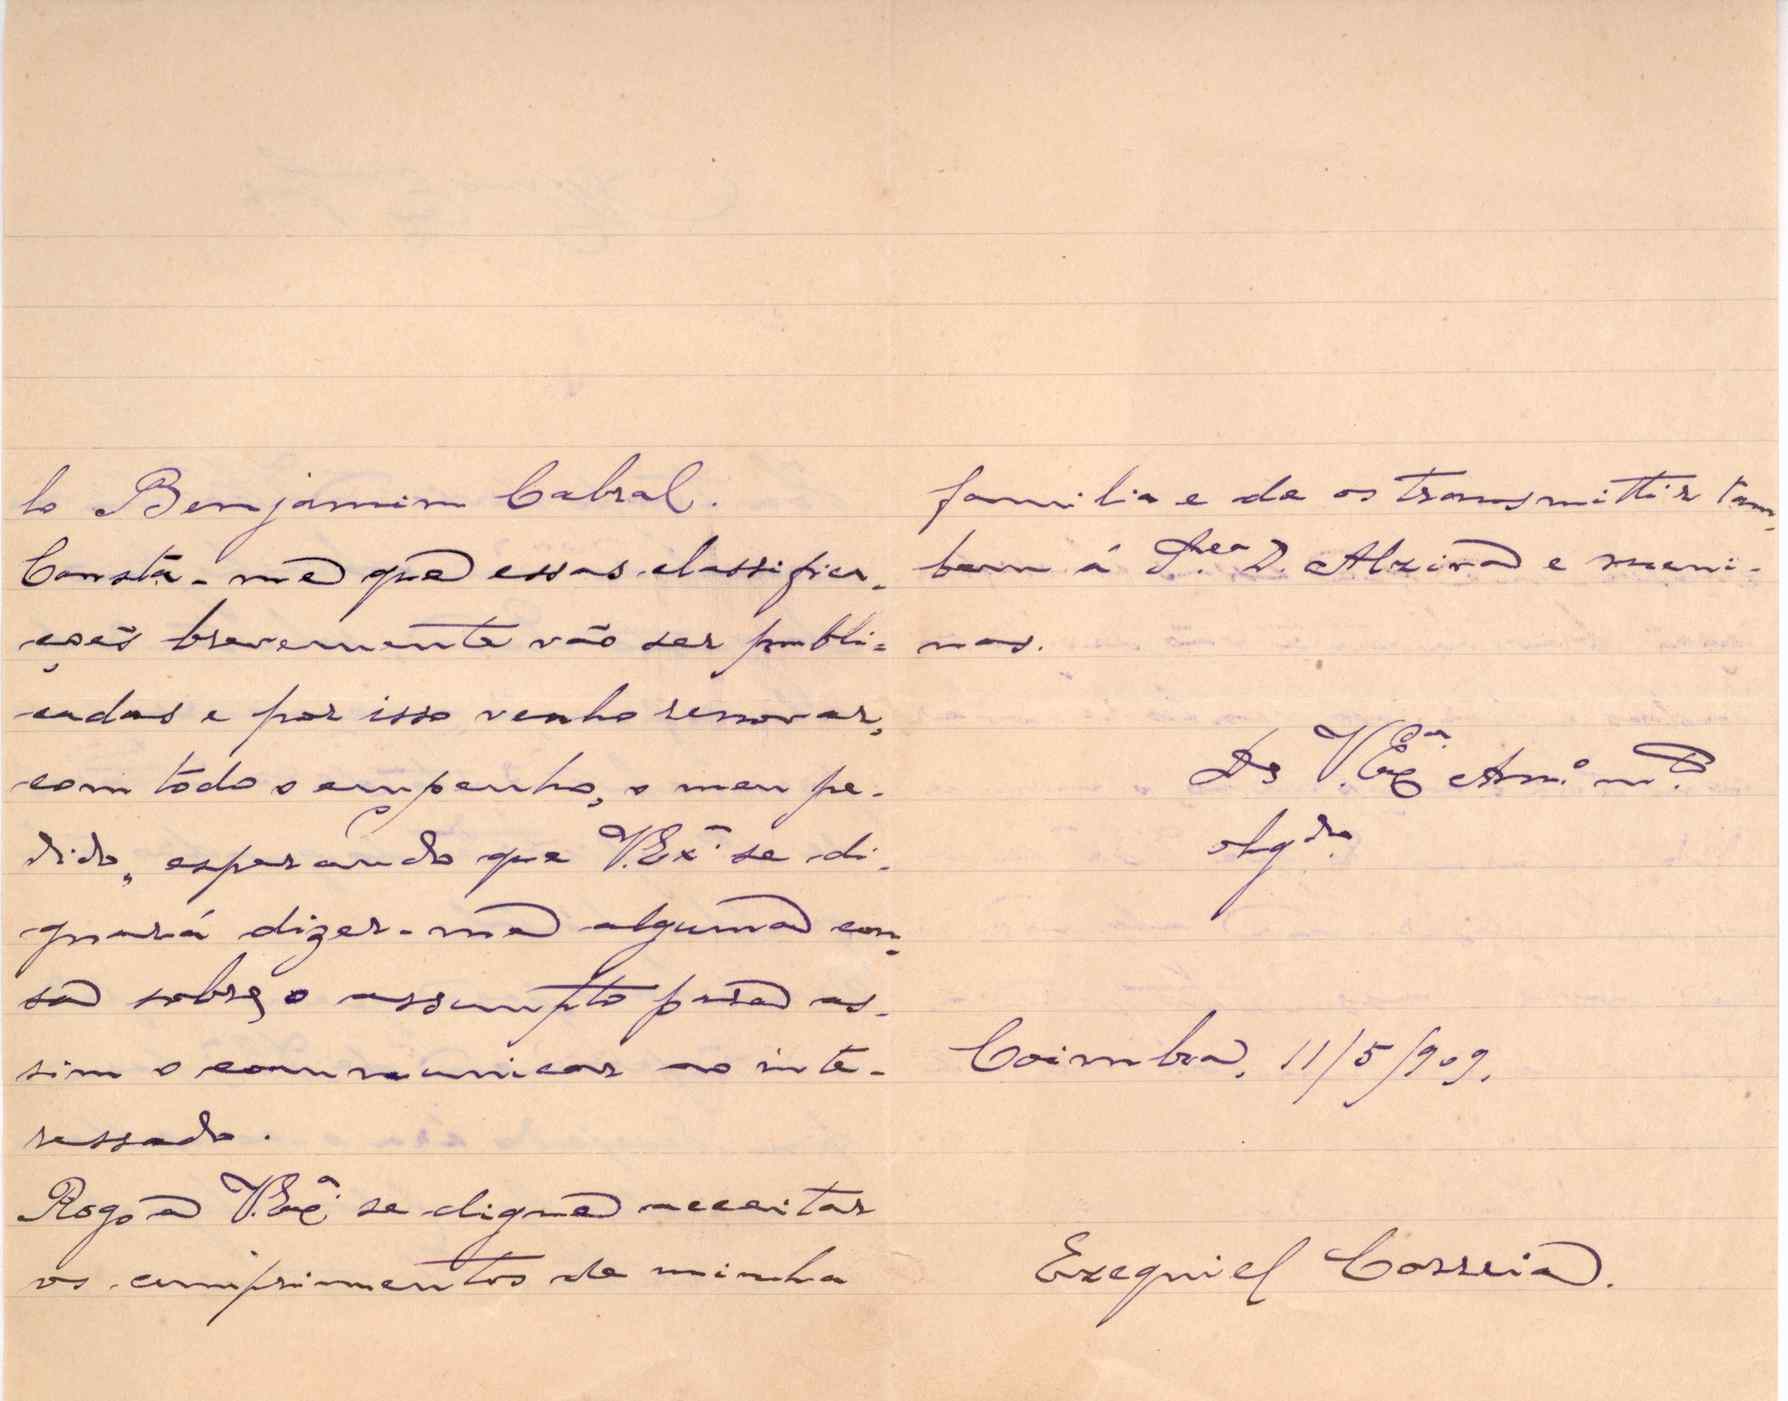 lo Benjamim Cabral.
Consta-me que essas classifica-
ções brevemente vão ser publi=
cadas e por isso venho renovar,
com todo o empenho, o meu pe-
dido, esperando que V. Ex.ª se di-
gnará dizer-me alguma cou-
sa sobre o assumpto para as-
sim o communicar ao inte-
ressado.
Rogo a V. Ex.ª se digne acceitar
os cumprimentos de minha
familia e de os transmittir tam-
bem á Sr.ª D. Alzira e meni-
nas.
De V. Ex.ª Am.º m.to
obg.do
Coimbra, 11/5/909.
Ezequiel Correia.